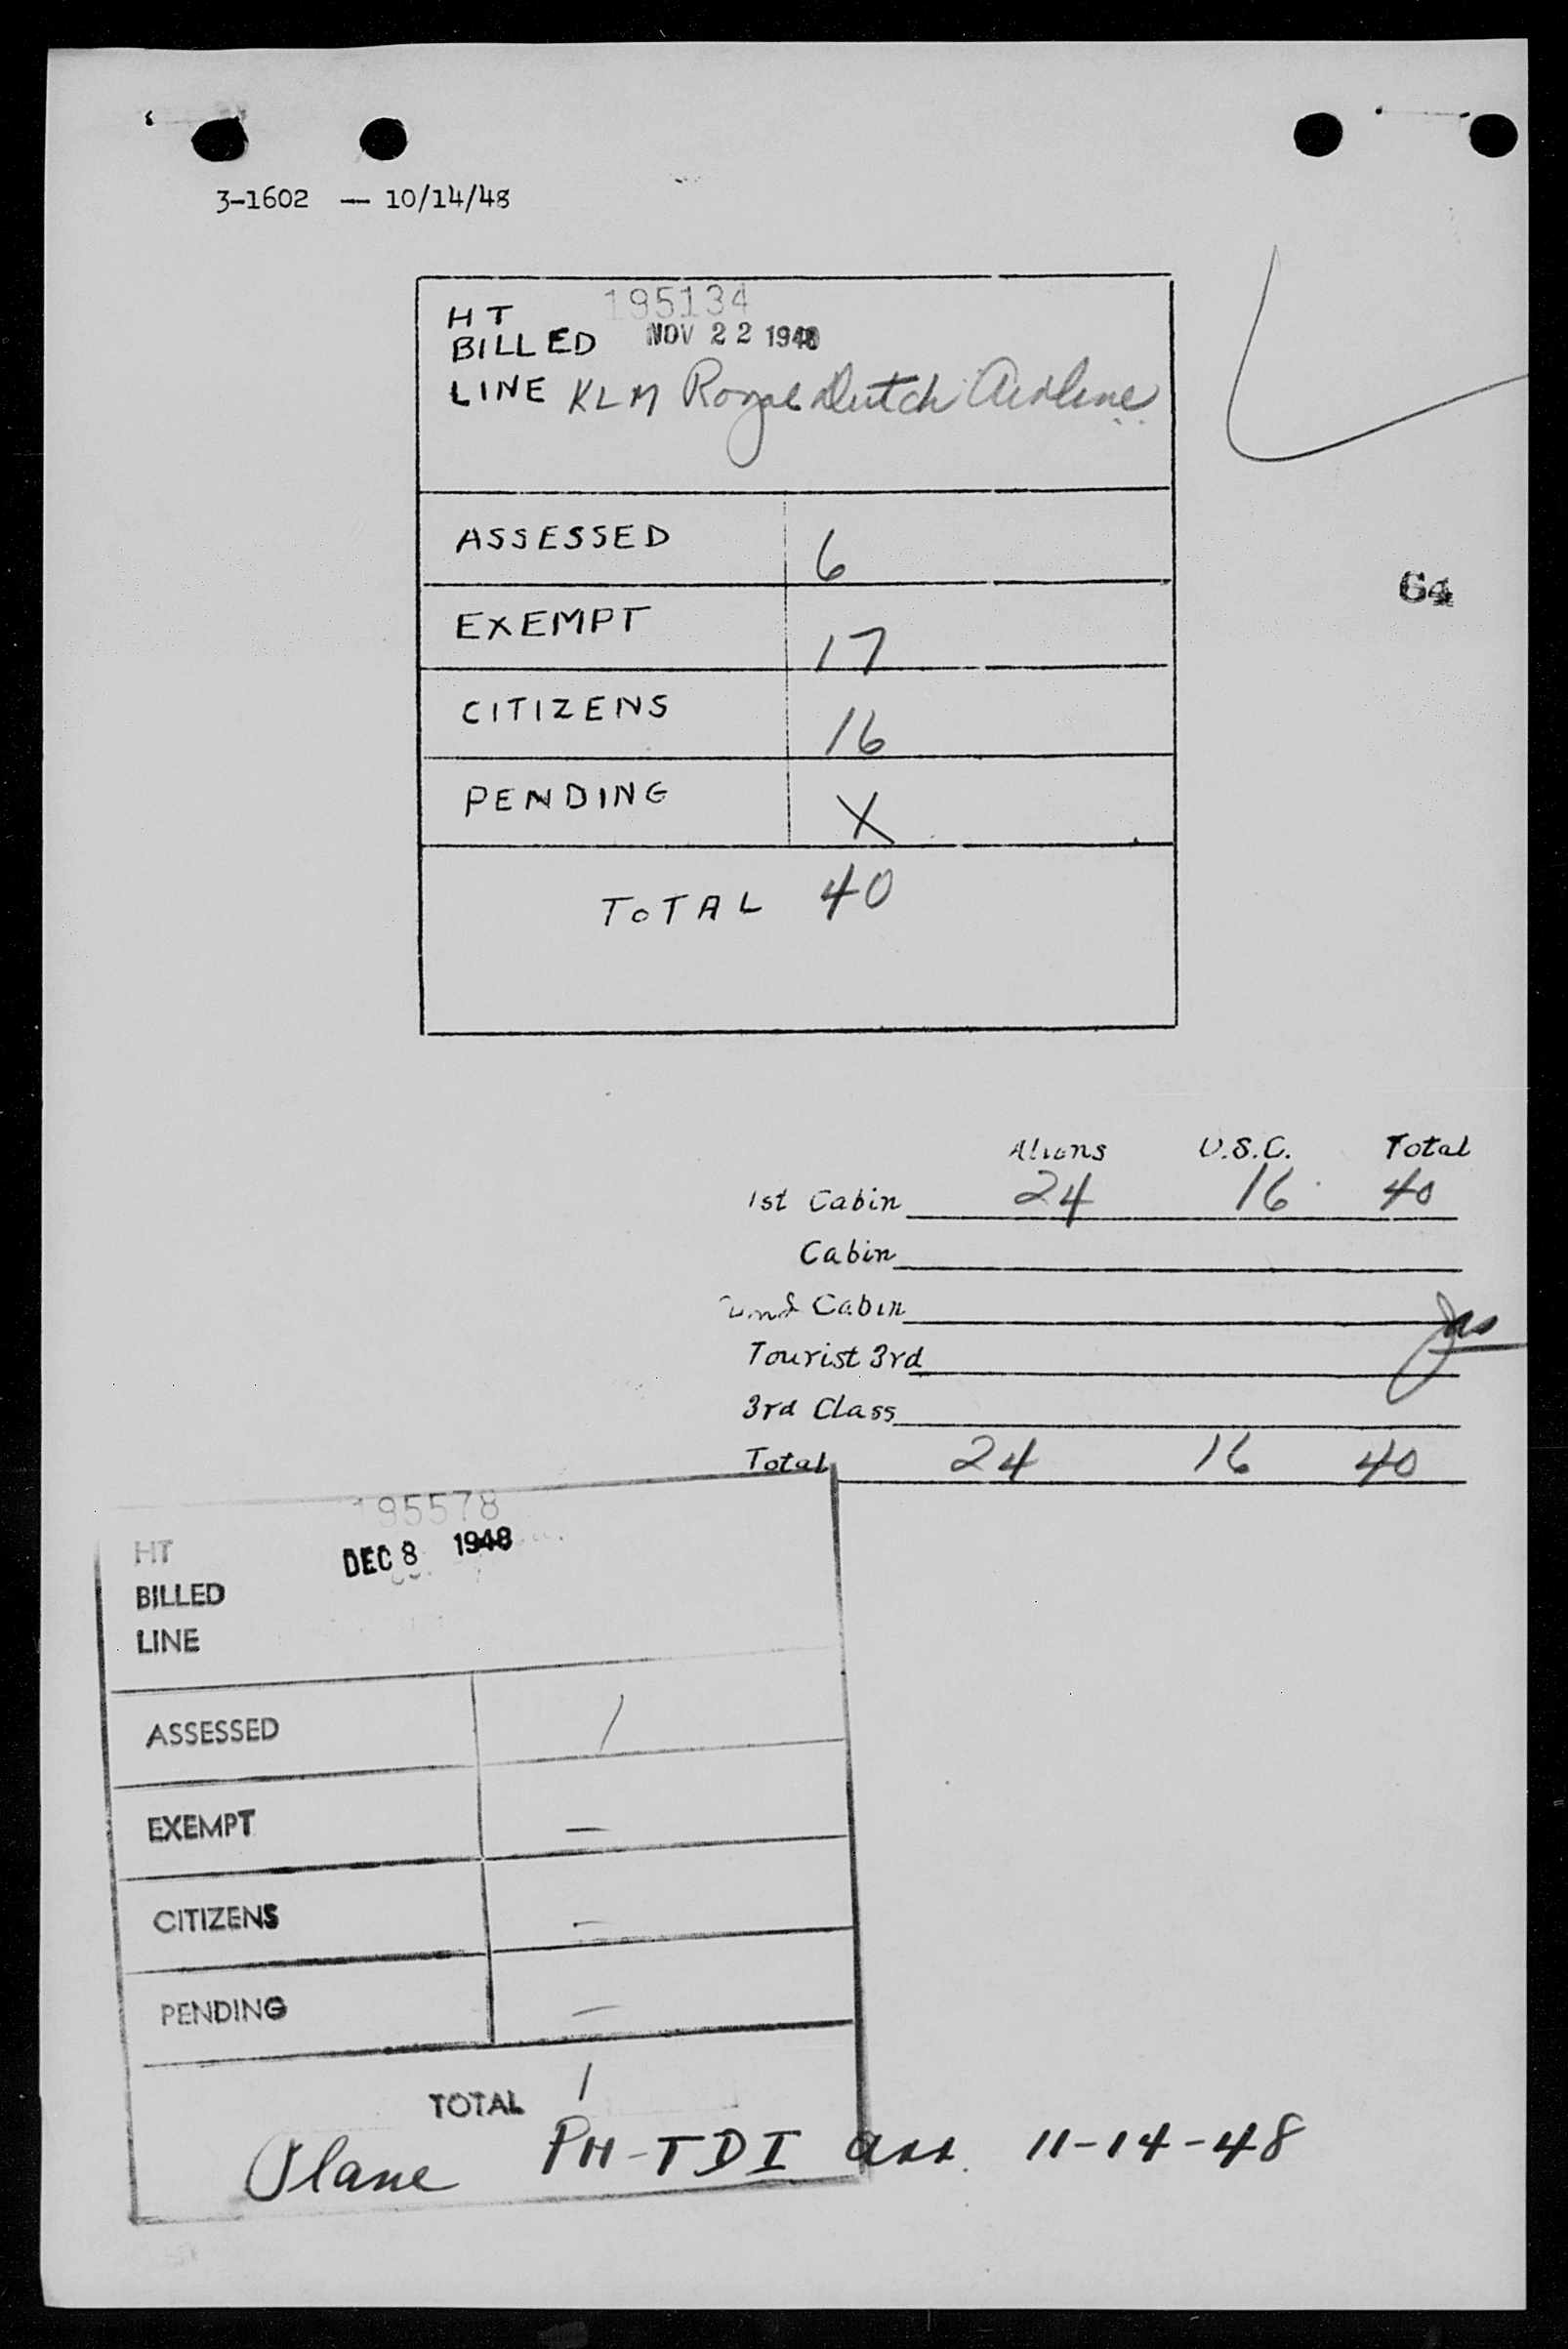 3-1602 — 10/14/48
195134
HT
BILLED NOV 22 1948
LINE KLM Royal Dutch Airline
ASSESSED 6
64
EXEMPT 17
CITIZENS 16
PENDING X
TOTAL 40
Aliens U.S.C. Total
1st Cabin 24 16 40
Cabin
2nd Cabin
Tourist 3rd
3rd Class
Total 24 16 40
195578
HT
DEC 8 1948
BILLED
LINE
ASSESSED 1
EXEMPT —
CITIZENS —
PENDING —
TOTAL 1
Plane PH-TDI arr. 11-14-48